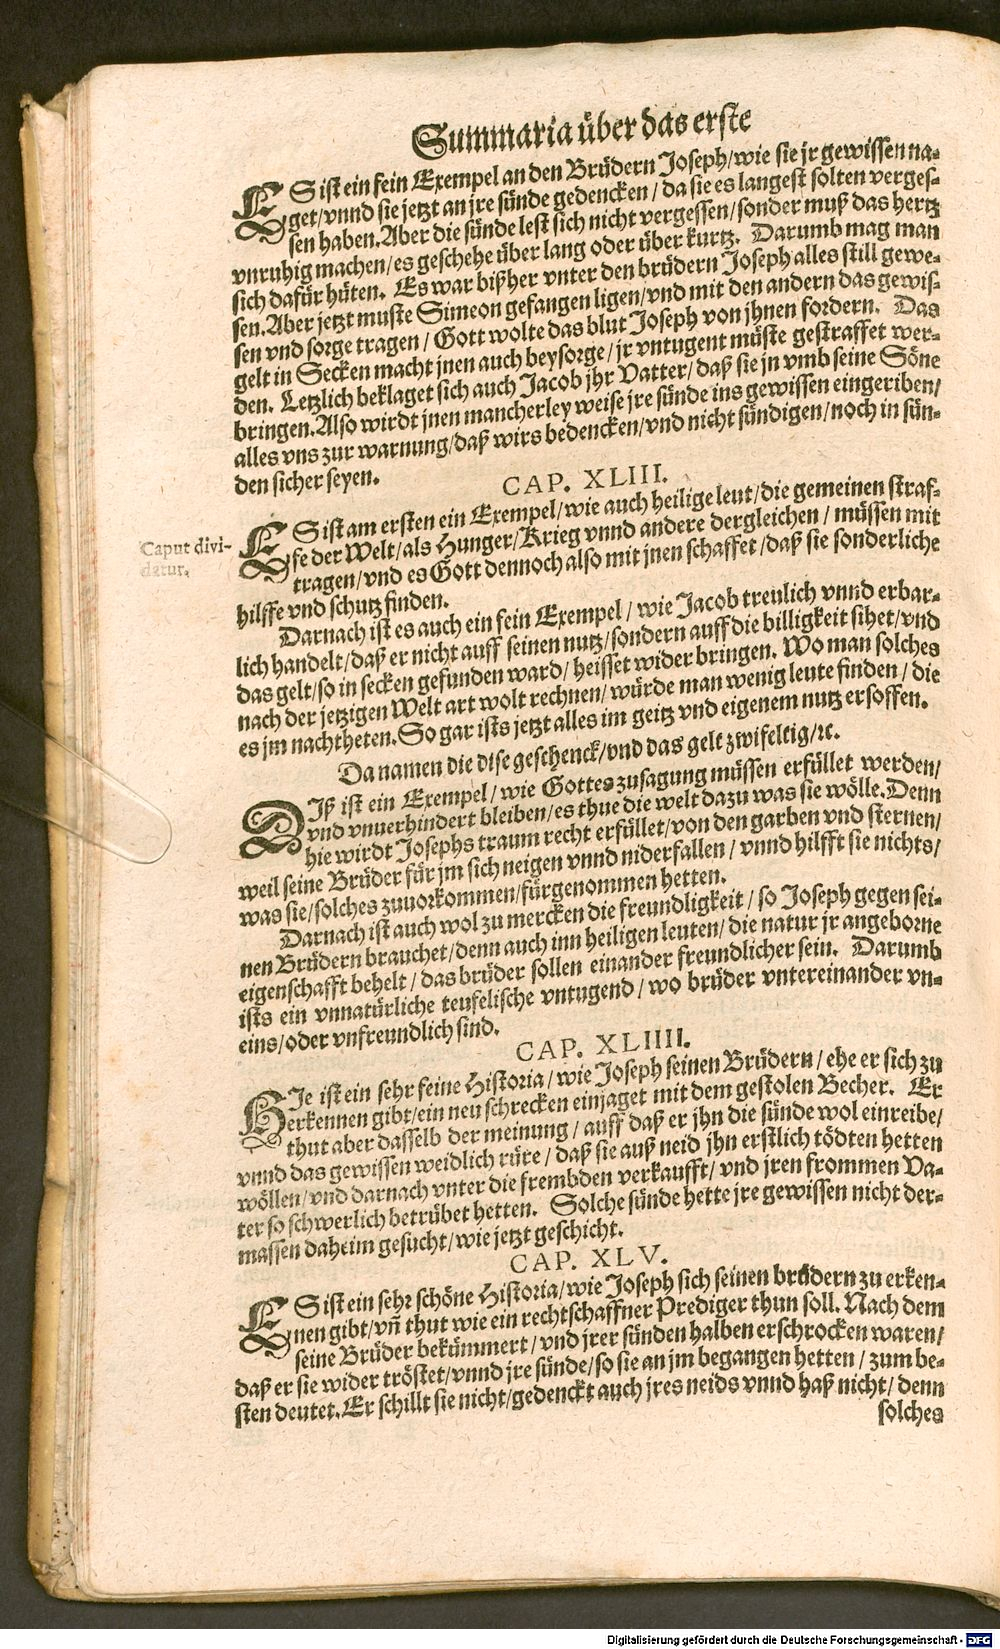 Summaria über das erste
ES ist ein fein Exempel an den Brüdern Joseph/wie sie jr gewissen na-
get/vnnd sie jetzt an jre sünde gedencken/ da sie es langest solten verges-
sen haben. Aber die sünde lest sich nicht vergessen/sonder muß das hertz
vnruhig machen/es geschehe über lang oder über kurtz. Darumb mag man
sich dafür hüten. Es war bißher vnter den brüdern Joseph alles still gewe-
sen. Aber jetzt muste Simeon gefangen ligen/vnd mit den andern das gewis-
sen vnd sorge tragen/ Gott wolte das blut Joseph von jhnen fordern. Das
gelt in Secken macht jnen auch beysorge/ jr vntugent müste gestraffet wer-
den. Letzlich beklaget sich auch Jacob jhr Vatter/ daß sie jn vmb seine Söne
bringen. Also wirdt jnen mancherley weise jre sünde ins gewissen eingeriben/
alles vns zur warnung/daß wirs bedencken/vnd nicht sündigen/noch in sün-
den sicher seyen.
CAP. XLIII.
ES ist am ersten ein Exempel/wie auch heilige leut/die gemeinen straf-
Caput divi-
datur.
fe der Welt/als Hunger/Krieg vnnd andere dergleichen/ müssen mit
tragen/vnd es Gott dennoch also mit jnen schaffet/daß sie sonderliche
hilffe vnd schutz finden.
Darnach ist es auch ein fein Exempel/ wie Jacob treulich vnnd erbar-
lich handelt/daß er nicht auff seinen nutz/sondern auff die billigkeit sihet/vnd
das gelt/so in secken gefunden ward/ heisset wider bringen. Wo man solches
nach der jetzigen Welt art wolt rechnen/würde man wenig leute finden/ die
es jm nachtheten. So gar ists jetzt alles im geitz vnd eigenem nutz ersoffen.
Da namen die dise geschenck/vnd das gelt zwifeltig/ꝛc.
DIß ist ein Exempel/ wie Gottes zusagung müssen erfüllet werden/
vnd vnuerhindert bleiben/es thue die welt dazu was sie wölle. Denn
hie wirdt Josephs traum recht erfüllet/von den garben vnd sternen/
weil seine Brüder für jm sich neigen vnnd niderfallen/ vnnd hilfft sie nichts/
was sie/solches zuuorkommen/fürgenommen hetten.
Darnach ist auch wol zu mercken die freundligkeit/ so Joseph gegen sei-
nen Brüdern brauchet/denn auch inn heiligen leuten/ die natur jr angeborne
eigenschafft behelt/ das brüder sollen einander freundlicher sein. Darumb
ists ein vnnatürliche teufelische vntugend/ wo brüder vntereinander vn-
eins/oder vnfreundlich sind.
CAP. XLIIII.
HIe ist ein sehr feine Historia/ wie Joseph seinen Brüdern/ ehe er sich zu
erkennen gibt/ein neu schrecken einjaget mit dem gestolen Becher. Er
thut aber dasselb der meinung/ auff daß er jhn die sünde wol einreibe/
vnnd das gewissen weidlich rüre/ daß sie auß neid jhn erstlich tödten hetten
wöllen/vnd darnach vnter die frembden verkaufft/ vnd jren frommen Va-
ter so schwerlich betrübet hetten. Solche sünde hette jre gewissen nicht der-
massen daheim gesucht/wie jetzt geschicht.
CAP. XLV.
ES ist ein sehr schöne Historia/wie Joseph sich seinen brüdern zu erken-
nen gibt/vñ thut wie ein rechtschaffner Prediger thun soll. Nach dem
seine Brüder bekümmert/vnd jrer sünden halben erschrocken waren/
daß er sie wider tröstet/vnnd jre sünde/so sie an jm begangen hetten/ zum be-
sten deutet. Er schillt sie nicht/gedenckt auch jres neids vnnd haß nicht/ denn
solches
Digitalisierung gefördert durch die Deutsche Forschungsgemeinschaft - DFG